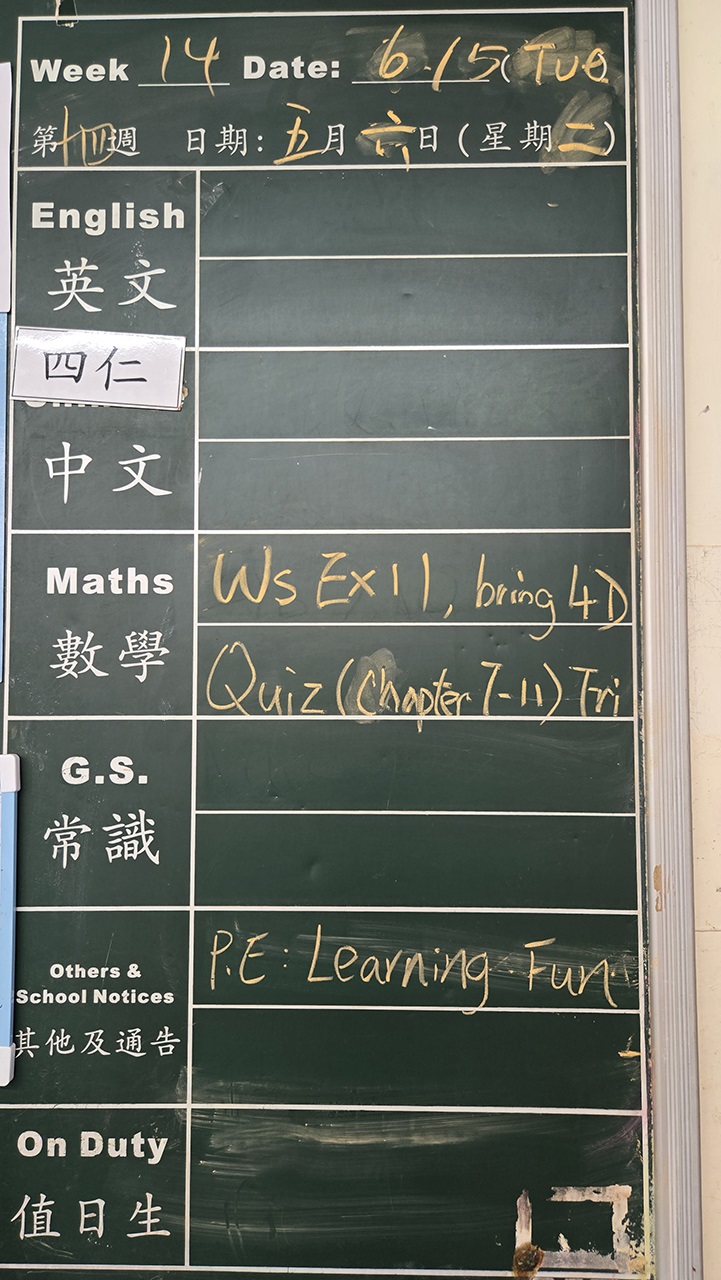 Week 14 Date: 6.15(Tue
第十四週 日期:五月六日(星期二)
English
英文
四仁
中文
Maths
數學
Ws Ex11, bring 4D
Quiz (Chapter 7-11) Fri
G.S.
常識
Others &
School Notices
其他及通告
P.E: Learning Fun
On Duty
值日生